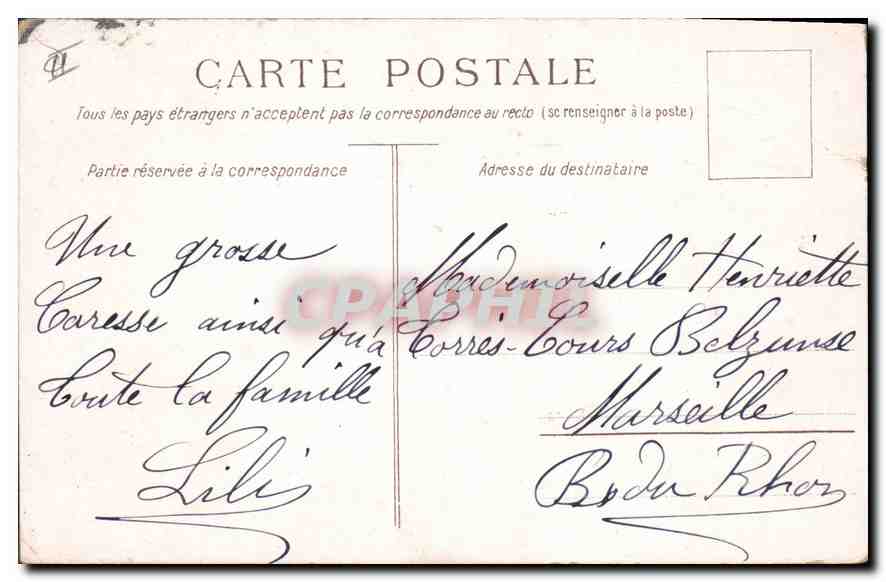 11
CARTE POSTALE
Tous les pays étrangers n'acceptent pas la correspondance au recto (se renseigner à la poste)
Partie réservée à la correspondance
Adresse du destinataire
Une grosse
Caresse ainsi qu'à
Toute la famille
Lili
Mademoiselle Henriette
Torrès-Cours Belzunse
Marseille
B. du Rhon
CPAPHIL